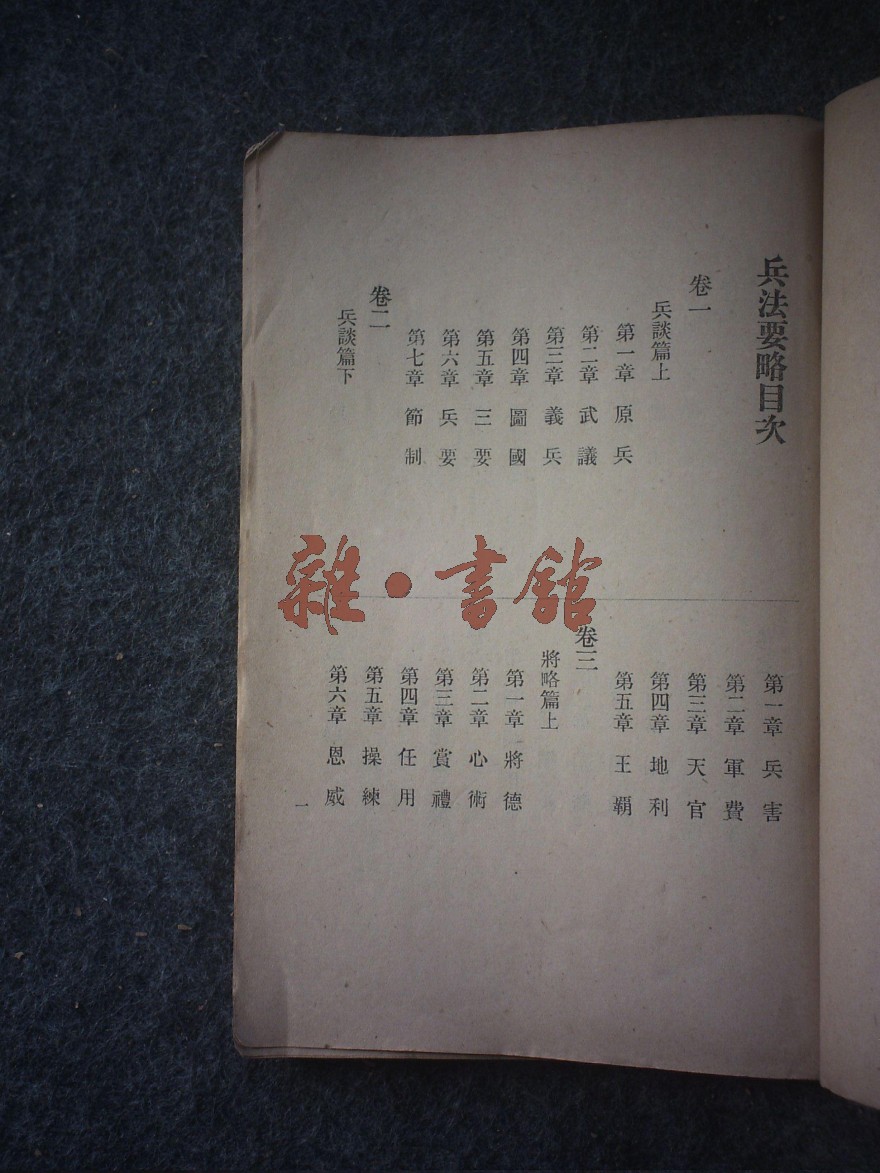 兵法要略目次
卷一
兵談篇上
第一章 原兵
第二章 武議
第三章 義兵
第四章 圖國
第五章 三要
第六章 兵要
第七章 節制
卷二
兵談篇下
第一章 兵害
第二章 軍費
第三章 天官
第四章 地利
第五章 王覇
卷三
將略篇上
第一章 將德
第二章 心術
第三章 賞禮
第四章 任用
第五章 操練
第六章 恩威
一
雜·書館